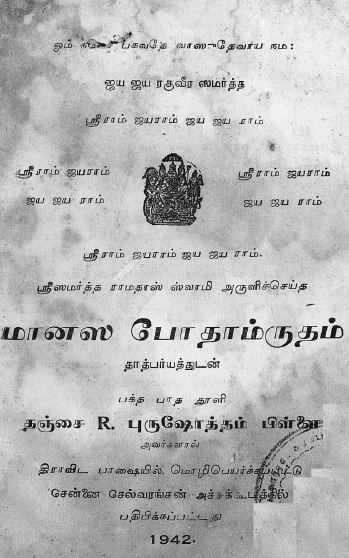 ஓம் நமோ பகவதே வாஸுதேவாய நம:
ஜய ஜய ரகுவீர ஸமர்த்த
ஸ்ரீராம் ஜயராம் ஜய ஜய ராம்
ஸ்ரீராம் ஜயராம்
ஜய ஜய ராம்
ஸ்ரீராம் ஜயராம்
ஜய ஜய ராம்
ஸ்ரீராம் ஜயராம் ஜய ஜய ராம்.
ஸ்ரீஸமர்த்த ராமதாஸ் ஸ்வாமி அருளிச்செய்த
மானஸ போதாம்ருதம்
தாத்பர்யத்துடன்
பக்த பாத தூளி
தஞ்சை R. புருஷோத்தம் பிள்ளை
அவர்களால்
திராவிட பாஷையில் மொழிபெயர்க்கப்பட்டு
சென்னை செல்வரங்கன் அச்சுக்கூடத்தில்
பதிபிக்கப்பட்டது
1942.